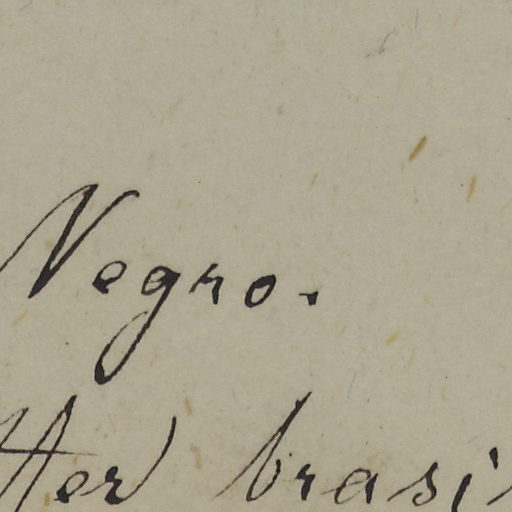 Negro.
Her brasi